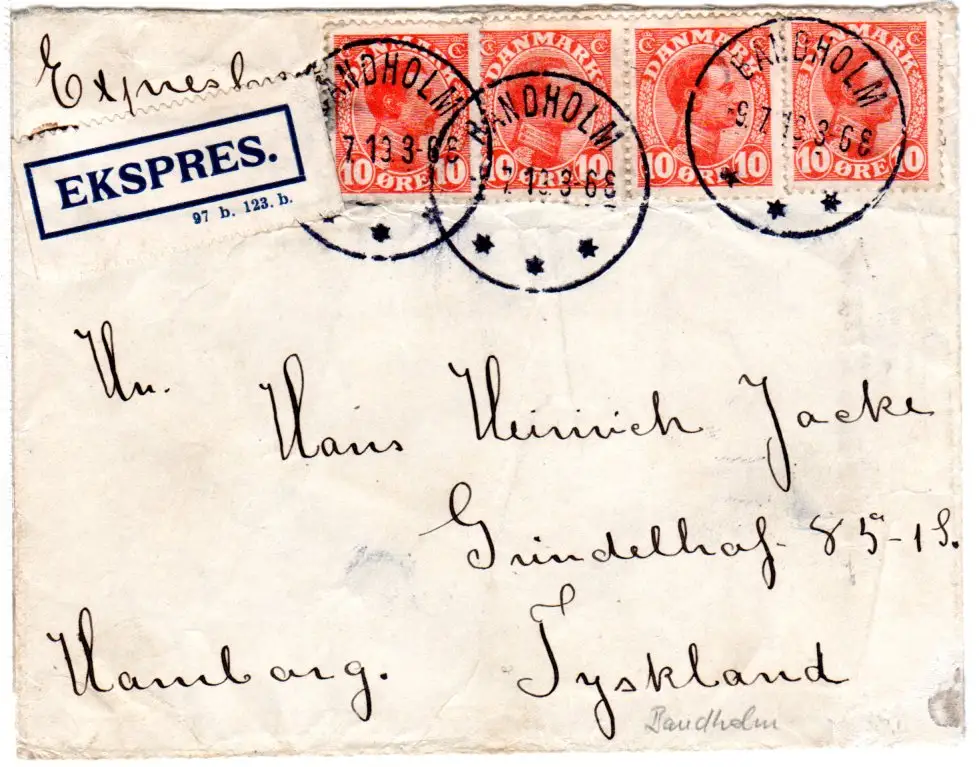 Expresbrev
EKSPRES.
97 b. 123. b.
DANMARK
10 ØRE 10
DANMARK
10 ØRE 10
DANMARK
10 ØRE 10
DANMARK
10 ØRE 10
BANDHOLM
7.19 3-6 E
BANDHOLM
7.19 3-6 E
BANDHOLM
-9.7.19 3-6 E
Hr.
Hans Heinrich Jacke
Grindelhof 85-1 S.
Hamborg. Tyskland
Bandholm